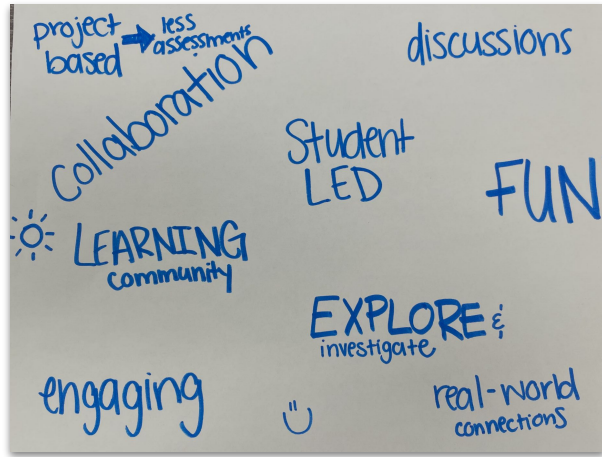 project → less
based assessments
discussions
collaboration
Student
LED
FUN
LEARNING
community
EXPLORE &
investigate
engaging
real-world
connections